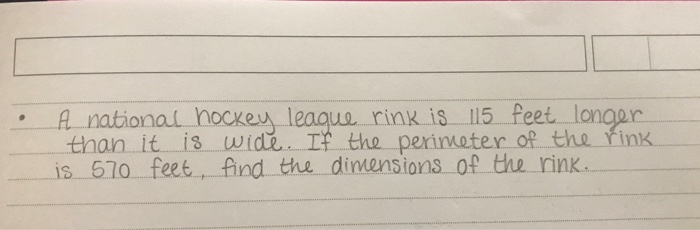 • A national hockey league rink is 115 feet longer
than it is wide. If the perimeter of the rink
is 570 feet, find the dimensions of the rink.